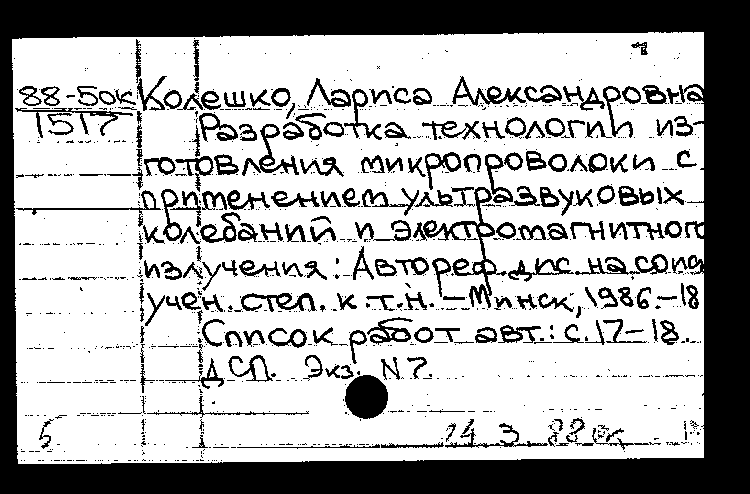 88-5ок Колешко, Лариса Александровна
1517 Разработка технологии из-
готовления микропроволоки с
применением ультразвуковых
колебаний и электромагнитного
излучения: Автореф. дис. на соиск
учен. степ. к.т.н. – Минск, 1986. – 18
Список работ авт.: с. 17–18.
ДСП. Экз. N 7.
5 14 3. 88 ок